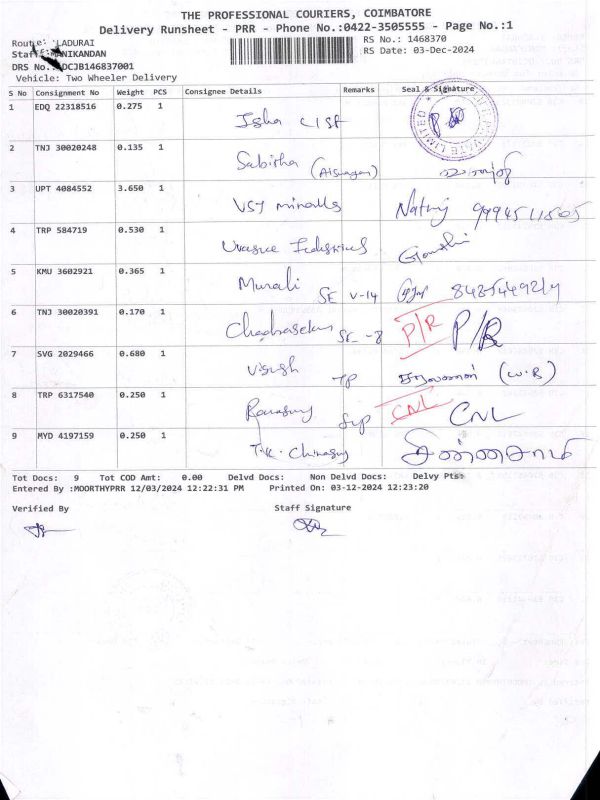 THE PROFESSIONAL COURIERS, COIMBATORE
Delivery Runsheet - PRR - Phone No.:0422-3505555 - Page No.:1
Route: LADURAI RS No.: 1468370
Staff: MANIKANDAN RS Date: 03-Dec-2024
DRS No.: DCJB146837001
Vehicle: Two Wheeler Delivery
S No Consignment No Weight PCS Consignee Details Remarks Seal & Signature
1 EDQ 22318516 0.275 1 Isha CISF
2 TNJ 30020248 0.135 1 Sabitha
3 UPT 4084552 3.650 1 VSJ minerals
4 TRP 584719 0.530 1
5 KMU 3602921 0.365 1 Murali SE V-14
6 TNJ 30020391 0.170 1 SE -8 P/R P/R
7 SVG 2029466 0.680 1 TP சரவணன் (W.R)
8 TRP 6317540 0.250 1 CNL CNL
9 MYD 4197159 0.250 1 T.K. Chinasamy சின்னசாமி
Tot Docs: 9 Tot COD Amt: 0.00 Delvd Docs: Non Delvd Docs: Delvy Pts:
Entered By :MOORTHYPRR 12/03/2024 12:22:31 PM Printed On: 03-12-2024 12:23:20
Verified By Staff Signature